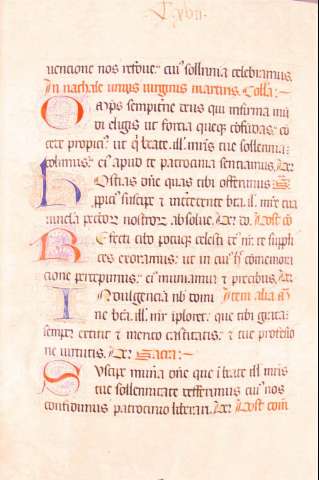 uencione nos refoue: cui' sollemnia celebramus.
In natale unius uirginis martiris. Colla:
Omps sempiterne deus qui infirma mu
di eligis ut fortia queq; cōfūdas: cō
cede propici' ut q' beate .ill. mris tue sollemnia
colimus: ei' apud te patrocinia sentiamus. Per
Hostias dn̄e quas tibi offerimus S
ppici' suscipe et intercedente bta .ill. mre tua
uincla peccatorum nostrorum absolue. Per do. Post cō
Refecti cibo potuque celesti te
ces exoramus: ut in cui' h' comemora
cione percepimus: ei' muniamur et precibus. Per
Indulgencia nb domi Item alia
ne bta .ill. mr imploret: que tibi grata
semper extitit et merito castitatis: et tue professio
ne uirtutis. Per Sacra:
Suscipe mun̄a dn̄e que i beate .ill. mris
tue sollemnitate defferimus cui' nos
confidimus patrocinio liberari. Per Post com